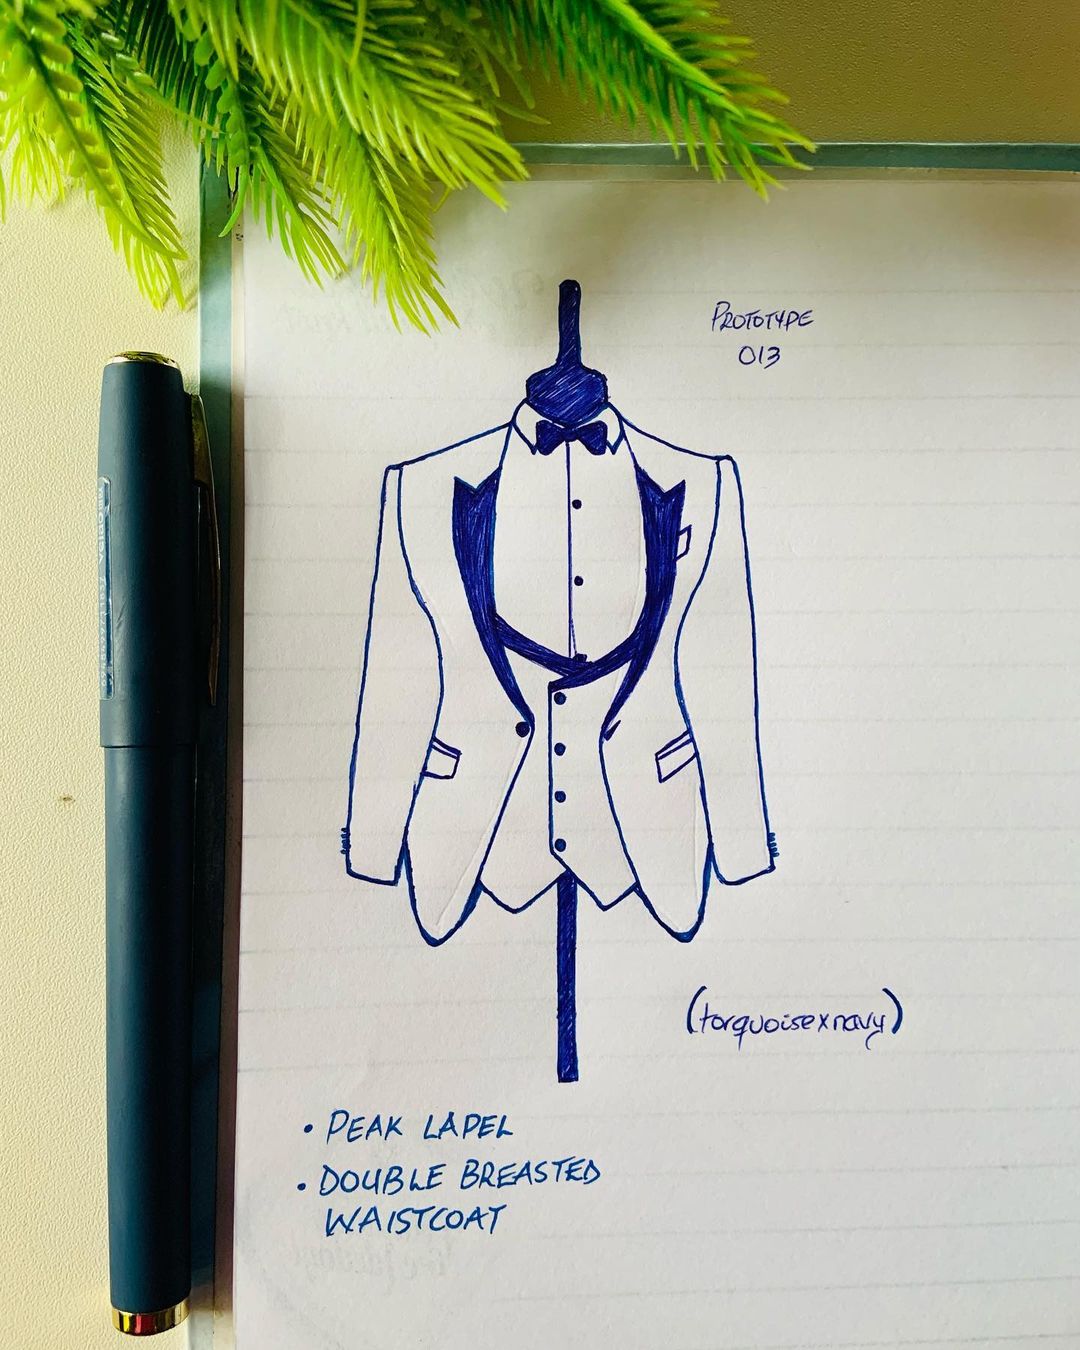 PROTOTYPE
013
(torquoisexnavy)
• PEAK LAPEL
• DOUBLE BREASTED
WAISTCOAT